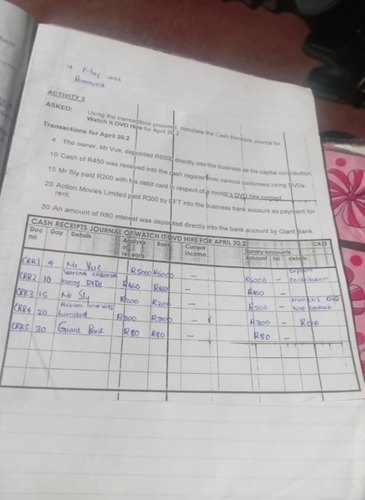 May
Homework
ACTIVITY 3
ASKED:
Using the transactions provided, complete the Cash Receipts Journal for
Watch It DVD Hire for April 20.2
Transactions for April 20.2
4 The owner, Mr Vue, deposited R5000 directly into the business as his capital contribution.
10 Cash of R450 was received into the cash register from various customers hiring DVDs.
15 Mr Sly paid R200 with his debit card in respect of a month's DVD hire contract
20 Action Movies Limited paid R300 by EFT into the business bank account as payment for
rent.
30 An amount of R80 interest was deposited directly into the bank account by Giant Bank.
CASH RECEIPTS JOURNAL OF WATCH IT DVD HIRE FOR APRIL 20.2
Doc no Day Details Analysis of receipts Bank Current income Sundry accounts
Amount fol details
CRR1 4 Mr Vue R5000 R5000 — R5000 — contribution
CRR2 10 hiring DVDs R450 R450 — R450
CRR3 15 Mr Sly R200 R200 — R200 — month's DVD hire
CRR4 20 Limited R300 R300 — R300 — Rent
CRR5 30 Giant Bank R80 R80 — R80 —